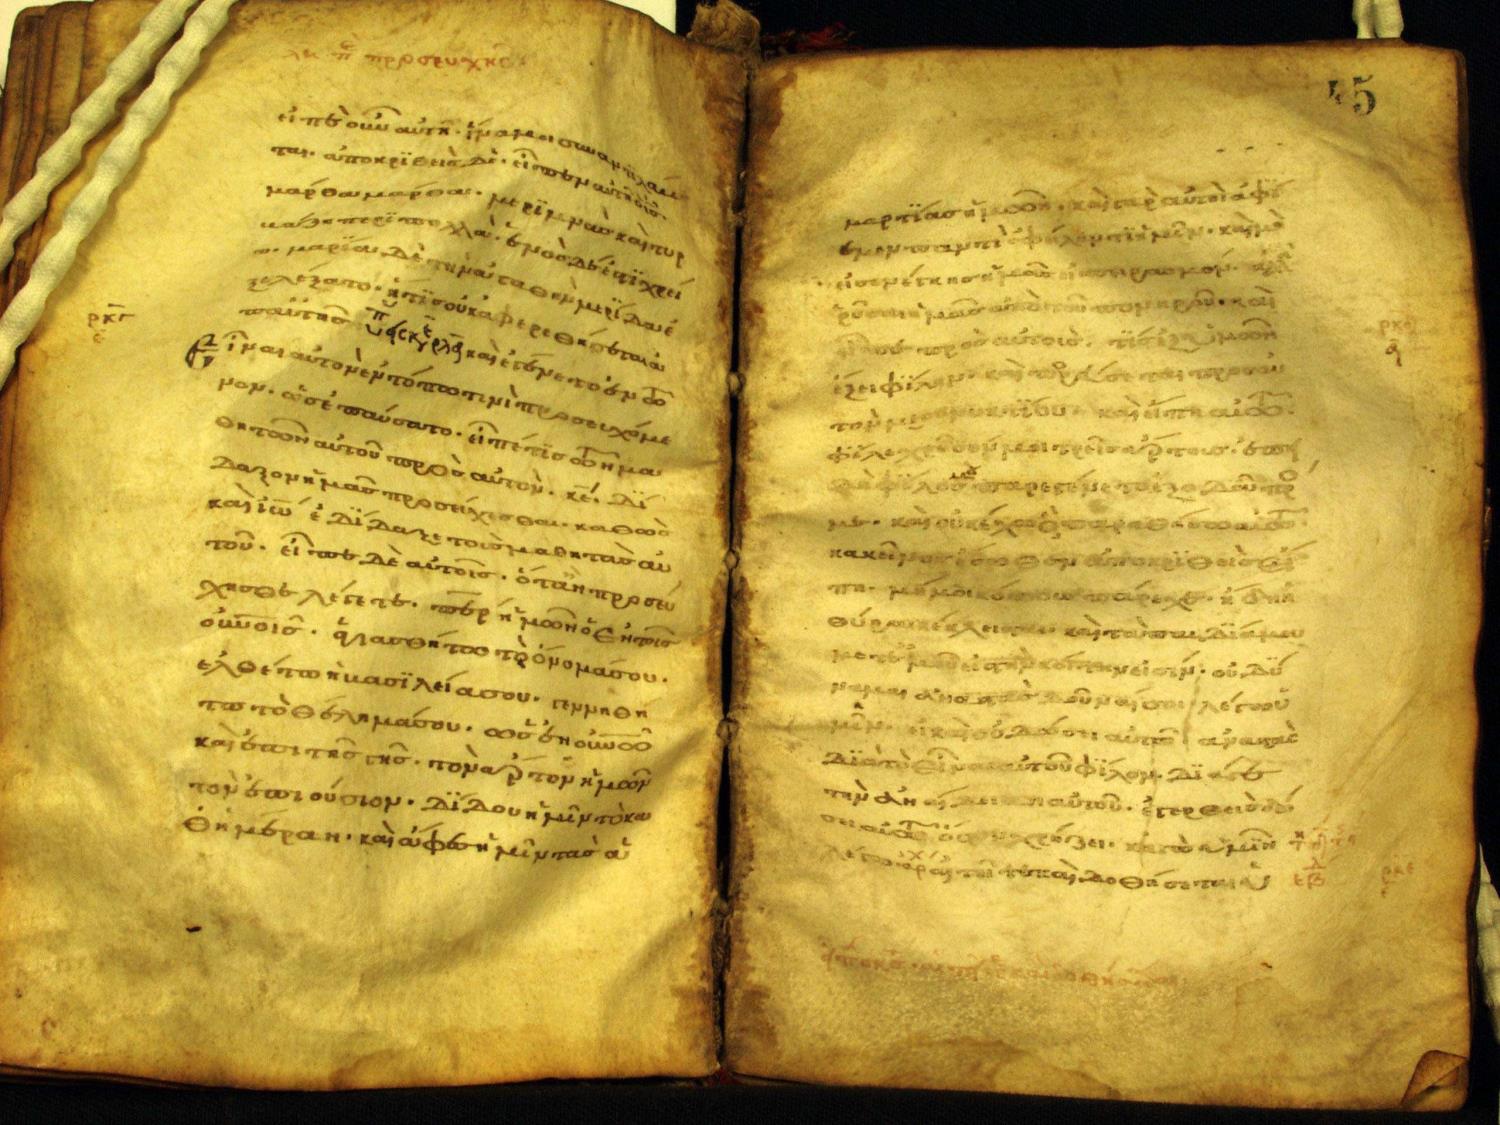 λη περι προσευχης
εἰπὲ οὖν αὐτῆ· ἵνα μοι συναντιλάβη
ται. ἀποκριθεὶς δὲ· εἶπεν αὐτῆ ὁ ις·
μάρθα μάρθα· μεριμνᾶς καὶ τυρ
βάζη περὶ πολλὰ· ἑνὸς δὲ ἐστὶ χρεί
α· μαρία δὲ τὴν ἀγαθὴν μερίδα ἐ
ξελέξατο· ἥτις οὐκ ἀφερεθήσεται ἀ
π αὐτῆς
ρκγ
καὶ ἐγένετο ἐν τῶ
εἶναι αὐτὸν ἐν τόπω τινὶ προσευχόμε
νον. ὡς ἐπαύσατο· εἶπέ τις τῶν μα
θητῶν αὐτοῦ πρὸς αὐτόν. κε· δί
δαξον ἡμᾶς προσεύχεσθαι. καθὼς
καὶ ιω ἐδίδαξε τοὺς μαθητὰς αὐ
τοῦ· εἶπεν δὲ αὐτοῖς· ὅταν προσεύ
χησθε λέγετε· περ ἡμῶν ὁ ἐν τοῖς
οὐνοις· ἁγιασθήτω τὸ ὄνομά σου·
ἐλθέτω ἡ βασιλεία σου· γεννηθή
τω τὸ θέλημά σου· ὡς ἐν οὐνω
καὶ ἐπὶ τῆς γῆς· τὸν ἄρτον ἡμῶν
τὸν ἐπιούσιον· δίδου ἡμῖν τὸ κα
θημέραν· καὶ ἄφες ἡμῖν τὰς ἁ
45
μαρτίας ἡμῶν· καὶ γὰρ αὐτοὶ ἀφί
εμεν παντὶ ὀφείλοντι ἡμῖν· καὶ μὴ
εἰσενέγκης ἡμᾶς εἰς πειρασμόν· ἀλλὰ
ῥῦσαι ἡμᾶς ἀπὸ τοῦ πονηροῦ· καὶ
εἶπε πρὸς αὐτούς· τίς ἐξ ὑμῶν
ἕξει φίλον· καὶ πορεύσεται πρὸς αὐ
τὸν μεσονυκτίου· καὶ εἴπη αὐτῶ·
φίλε χρῆσόν μοι τρεῖς ἄρτους· ἐπειδὴ
φίλος μου παρεγένετο ἐξ ὁδοῦ πρός
με· καὶ οὐκ ἔχω ὃ παραθήσω αὐτῶ·
κακεῖνος ἔσωθεν ἀποκριθεὶς εἴ
πη· μή μοι κόπους πάρεχε· ἤδη ἡ
θύρα κέκλεισται καὶ τὰ παιδία μου
μετ ἐμοῦ εἰς τὴν κοίτην εἰσίν· οὐ δύ
ναμαι ἀναστὰς δοῦναί σοι· λέγω ὑ
μῖν· εἰ καὶ οὐ δώσει αὐτῶ ἀναστὰς
διὰ τὸ εἶναι αὐτοῦ φίλον· διά γε
τὴν ἀναίδειαν αὐτοῦ· ἐγερθεὶς δώ
σει αὐτῶ ὅσων χρήζει· κἀγὼ ὑμῖν
λέγω· αἰτεῖτε καὶ δοθήσεται ὑ
ρκε